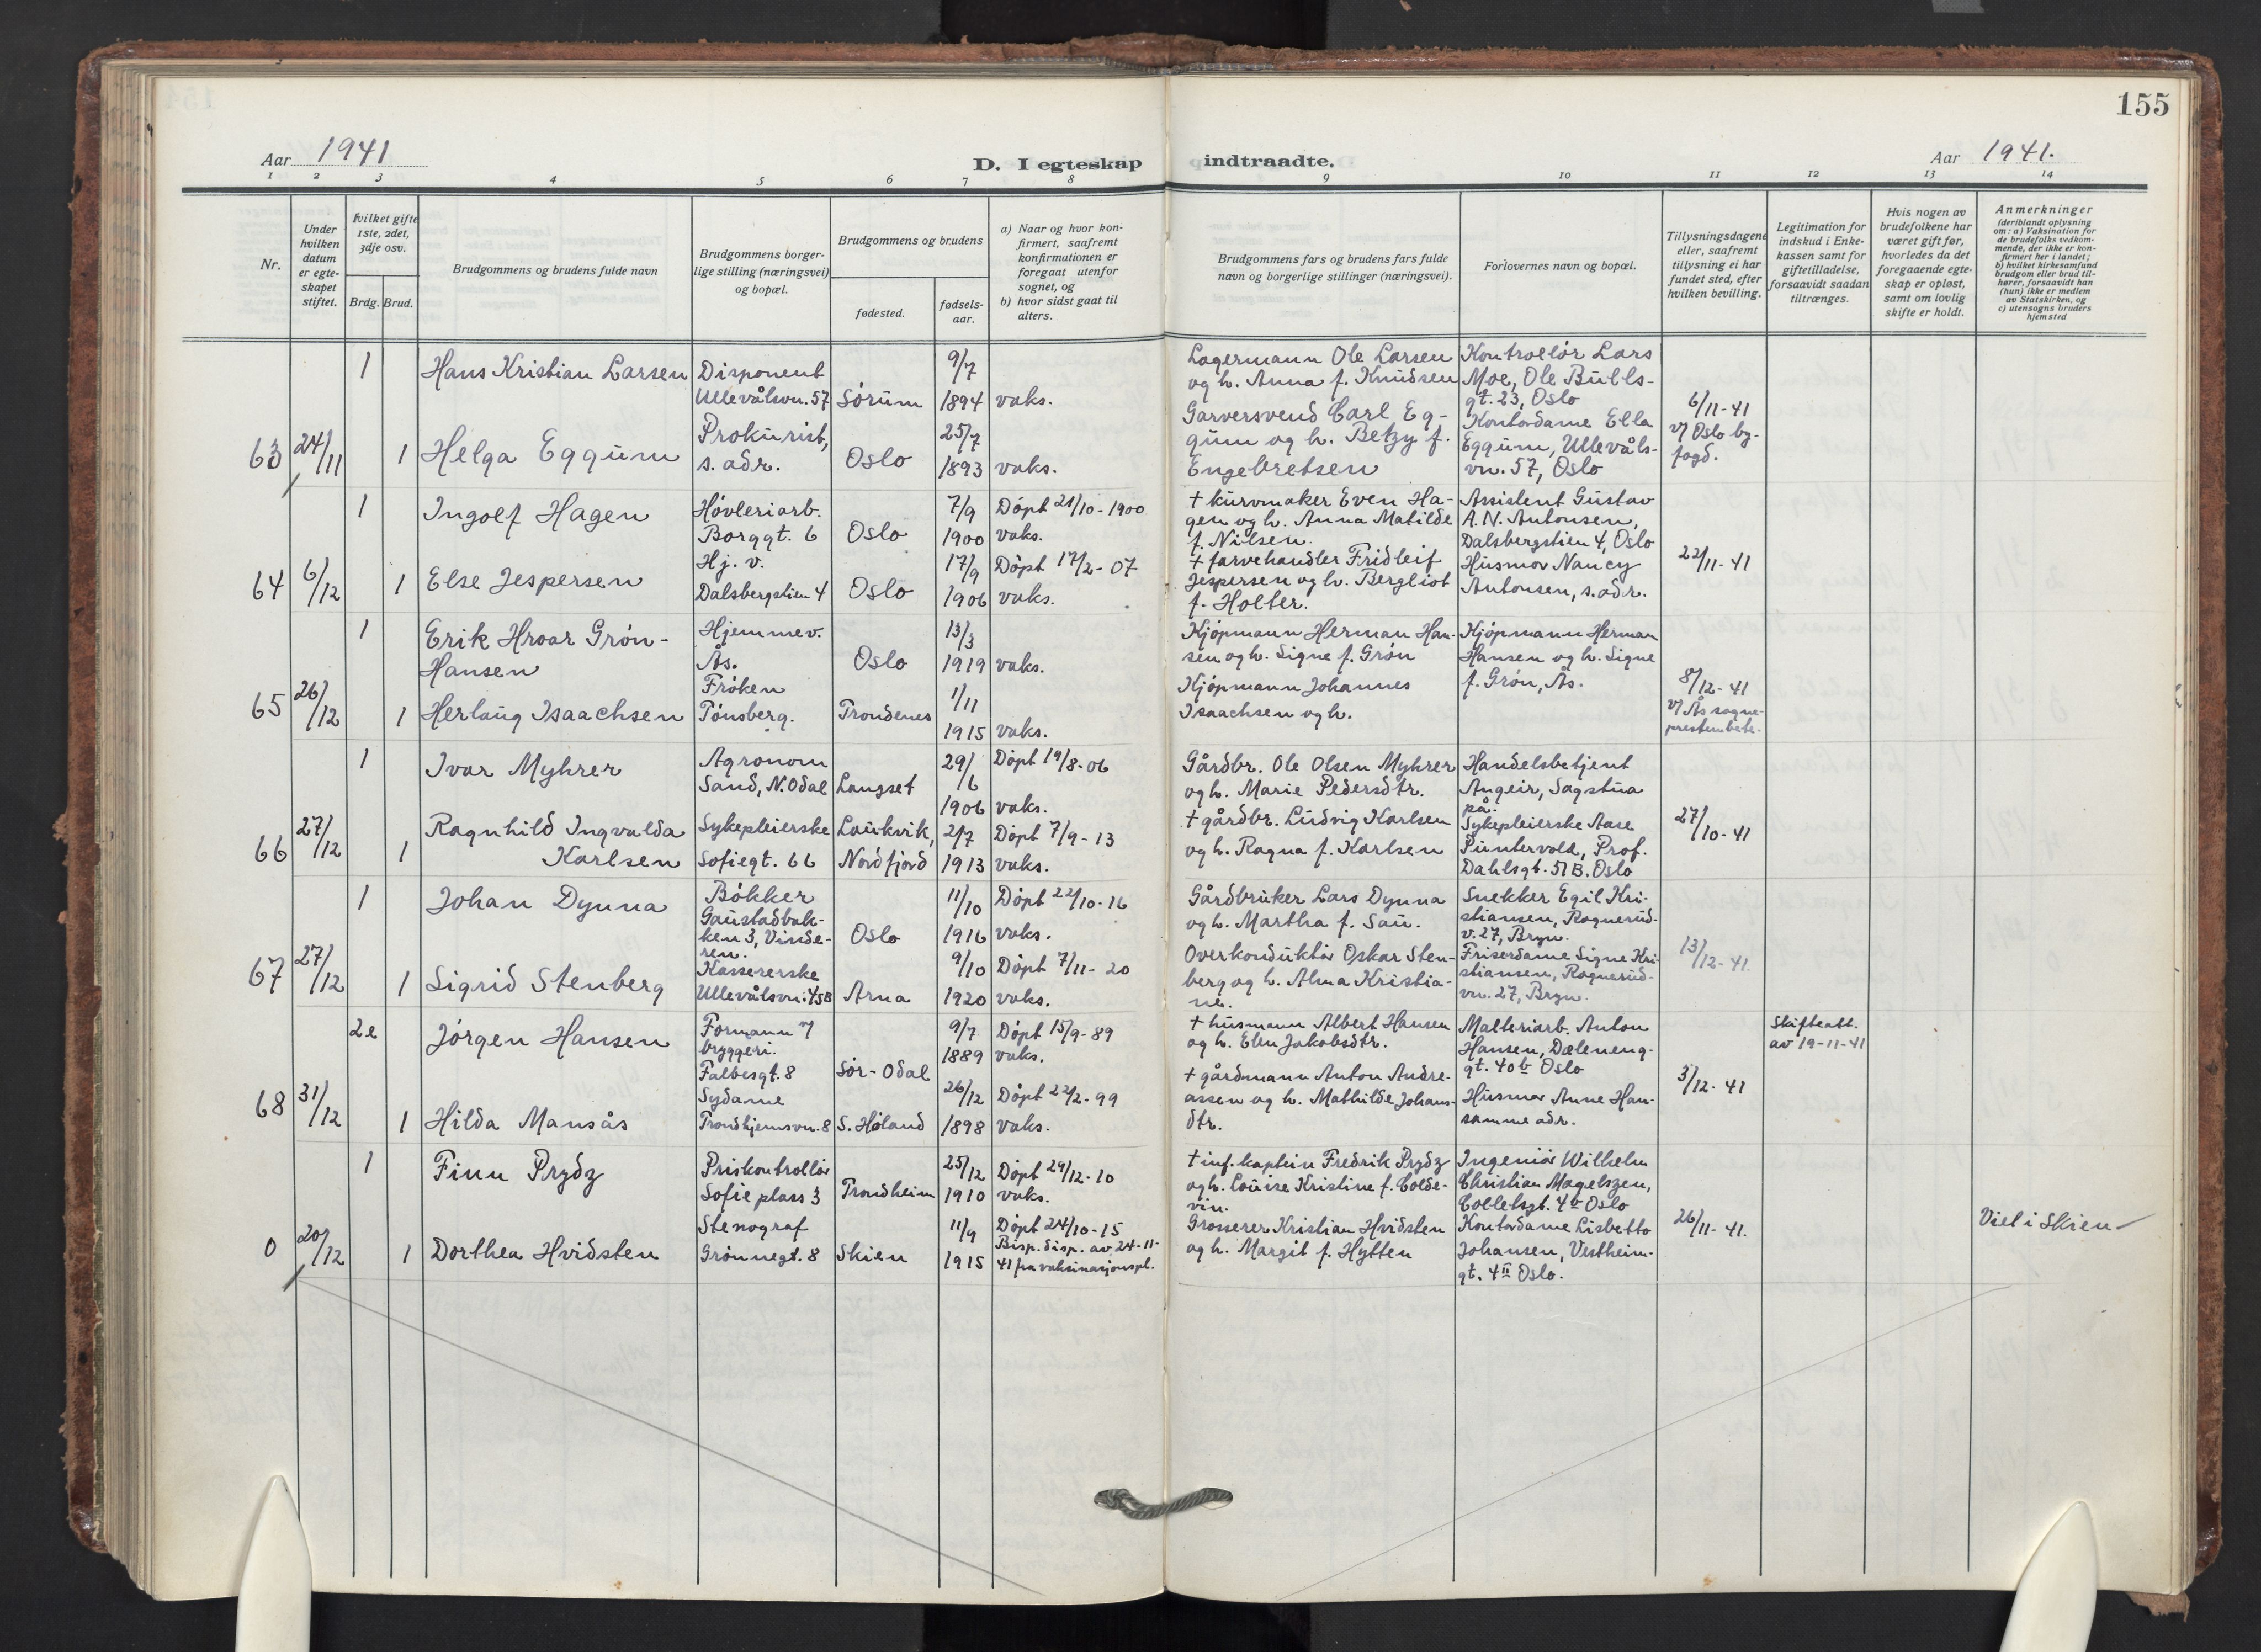 155
Aar 1941
D. I egteskap indtraadte.
Aar 1941.
1 2 3 4 5 6 7 8 9 10 11 12 13 14
Nr.
Under
hvilken
datum
er egte-
skapet
stiftet.
hvilket gifte
1ste, 2det,
3dje osv.
Brdg. Brud.
Brudgommens og brudens fulde navn
Brudgommens borger-
lige stilling (næringsvei)
og bopæl.
Brudgommens og brudens
fødested.
fødsels-
aar.
a) Naar og hvor kon-
firmert, saafremt
konfirmationen er
foregaat utenfor
sognet, og
b) hvor sidst gaat til
alters.
Brudgommens fars og brudens fars fulde
navn og borgerlige stillinger (næringsvei).
Forlovernes navn og bopæl.
Tillysningsdagene
eller, saafremt
tillysning ei har
fundet sted, efter
hvilken bevilling.
Legitimation for
indskud i Enke-
kassen samt for
giftetilladelse,
forsaavidt saadan
tiltrænges.
Hvis nogen av
brudefolkene har
været gift før,
hvorledes da det
foregaaende egte-
skap er opløst,
samt om lovlig
skifte er holdt.
Anmerkninger
(deriblandt oplysning
om: a) Vaksination for
de brudefolks vedkom-
mende, der ikke er kon-
firmert her i landet;
b) hvilket kirkesamfund
brudgom eller brud til-
hører, forsaavidt han
(hun) ikke er medlem
av Statskirken, og
c) utensogns bruders
hjemsted
63
24/11
1
Hans Kristian Larsen
Disponent
Ullevålsvn. 57
Sörum
9/7
1894
vaks.
1
Helga Eggum
Prokurist,
s. adr.
Oslo
25/7
1893
vaks.
Lagermann Ole Larsen
og h. Anna f. Knudsen
Garversvend Carl Eg-
gum og h. Betzy f.
Engebretsen
Kontrollör Lars
Moe, Ole Bulls-
gt. 23, Oslo
Kontordame Ella
Eggum, Ullevåls-
vn. 57, Oslo
6/11-41
v/ Oslo by-
fogd.
64
6/12
1
Ingolf Hagen
Hövleriarb.
Borggt. 6
Oslo
7/9
1900
Döpt 21/10-1900
vaks.
1
Else Jespersen
Hj. v.
Dalsbergstien 4
Oslo
17/9
1906
Döpt 17/2-07
vaks.
+ kurvmaker Even Ha-
gen og h. Anna Matilde
f. Nilsen.
+ farvehandler Fridleif
Jespersen og h. Bergliot
f. Holter.
Assistent Gustav
A. N. Antonsen,
Dalsbergstien 4, Oslo
Husmor Nancy
Antonsen, s. adr.
22/11-41
65
26/12
1
Erik Hroar Grön-
Hansen
Hjemmev.
Ås.
Oslo
13/3
1919
vaks.
1
Herlaug Isaachsen
Fröken
Tönsberg.
Trondenes
1/11
1915
vaks.
Kjöpmann Herman Han-
sen og h. Signe f. Grön
Kjöpmann Johannes
Isaachsen og h.
Kjöpmann Herman
Hansen og h. Signe
f. Grön, Ås.
8/12-41
v/ Ås sogne-
prestembete.
66
27/12
1
Ivar Myhrer
Agronom
Sand, N. Odal
Langset
29/6
1906
Döpt 19/8-06
vaks.
1
Ragnhild Ingvalda
Karlsen
Sykepleierske
Sofiegt. 66
Laukvik,
Nordfjord
2/7
1913
Döpt 7/9-13
vaks.
Gårdbr. Ole Olsen Myhrer
og h. Marie Pedersdtr.
+ gårdbr. Ludvig Karlsen
og h. Ragna f. Karlsen
Handelsbetjent
Angeir, Sagstua
på.
Sykepleierske Aase
Puntervold, Prof.
Dahlsgt. 51 B. Oslo
27/10-41
67
27/12
1
Johan Dynna
Bökker
Gaustadbak-
ken 3, Vinde-
ren.
Oslo
11/10
1916
Döpt 22/10-16
vaks.
1
Sigrid Stenberg
Kassererske
Ullevålsvn. 45B
Arna
9/10
1920
Döpt 7/11-20
vaks.
Gårdbruker Lars Dynna
og h. Martha f. Sau.
Overkonduktör Oskar Sten-
berg og h. Alma Kristia-
ne.
Snekker Egil Kri-
stiansen, Rognerud-
v. 27, Bryn.
Friserdame Signe Kri-
stiansen, Rognerud-
vn. 27, Bryn.
13/12-41.
68
31/12
2e
Jörgen Hansen
Formann v/
bryggeri.
Falbesgt. 8
Sör-Odal
9/7
1889
Döpt 15/9-89
vaks.
1
Hilda Mansås
Sydame
Trondhjemsvn. 8
S. Höland
26/12
1898
Döpt 22/2-99
vaks.
+ husmann Albert Hansen
og h. Elen Jakobsdtr.
+ gårdmann Anton Andre-
assen og h. Mathilde Johans-
dtr.
Malteriarb. Anton
Hansen, Dæleneng-
gt. 40b Oslo
Husmor Anne Han-
samme adr.
3/12-41
Skifteatt.
av 19-11-41
0
20/12
1
Finn Prydz
Priskontrollör
Sofie plass 3
Trondheim
25/12
1910
Döpt 29/12-10
vaks.
1
Dorthea Hvidsten
Stenograf
Grönnegt. 8
Skien
11/9
1915
Döpt 24/10-15
Bisp. disp. av 24-11-
41 fra vaksinasjonspl.
+ inf. kaptein Fredrik Prydz
og h. Louise Kristine f. Colde-
vin.
Grosserer Kristian Hvidsten
og h. Margit f. Hytten
Ingeniör Wilhelm
Christian Magelszen,
Colletsgt. 4b Oslo
Kontordame Lisbetto
Johansen, Vestheim-
gt. 4II Oslo.
26/11-41.
Viet i Skien